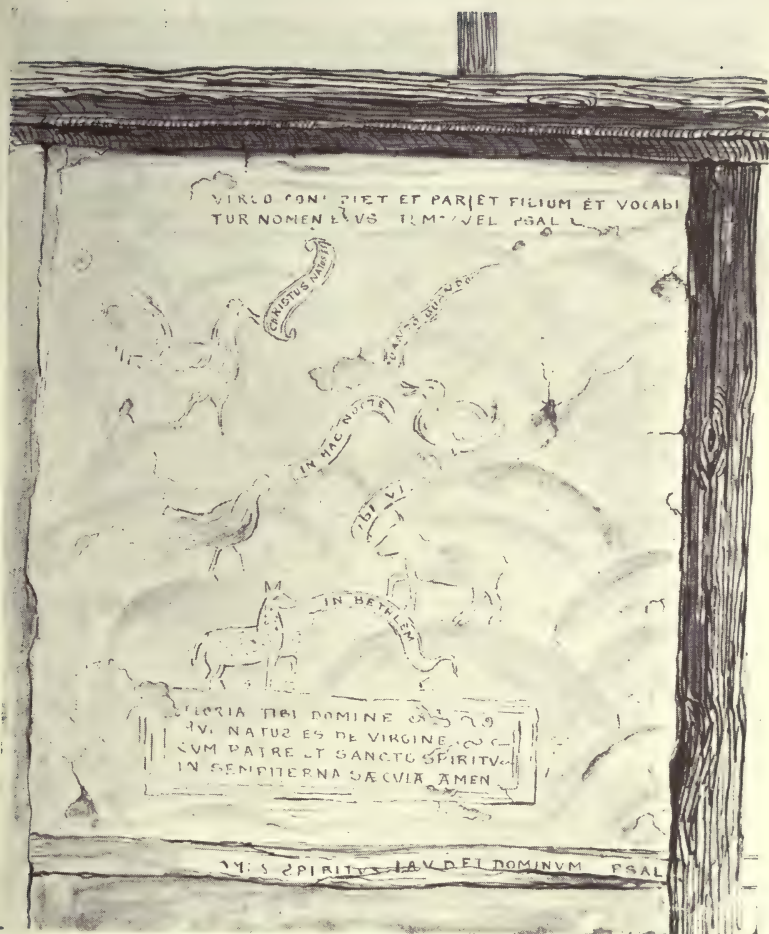 VIRGO CON PIET ET PARIET FILIUM ET VOCABI
TUR NOMEN VEL PSAL
CHRISTUS NATUS EST
QUANDO
IN HAC NOCTE
IBI VI
IN BETHLEM
GLORIA TIBI DOMINE
QVI NATUS ES DE VIRGINE
CVM PATRE ET SANCTO SPIRITV
IN SEMPITERNA SÆCVLA AMEN
SPIRITVS LAVDET DOMINVM PSAL